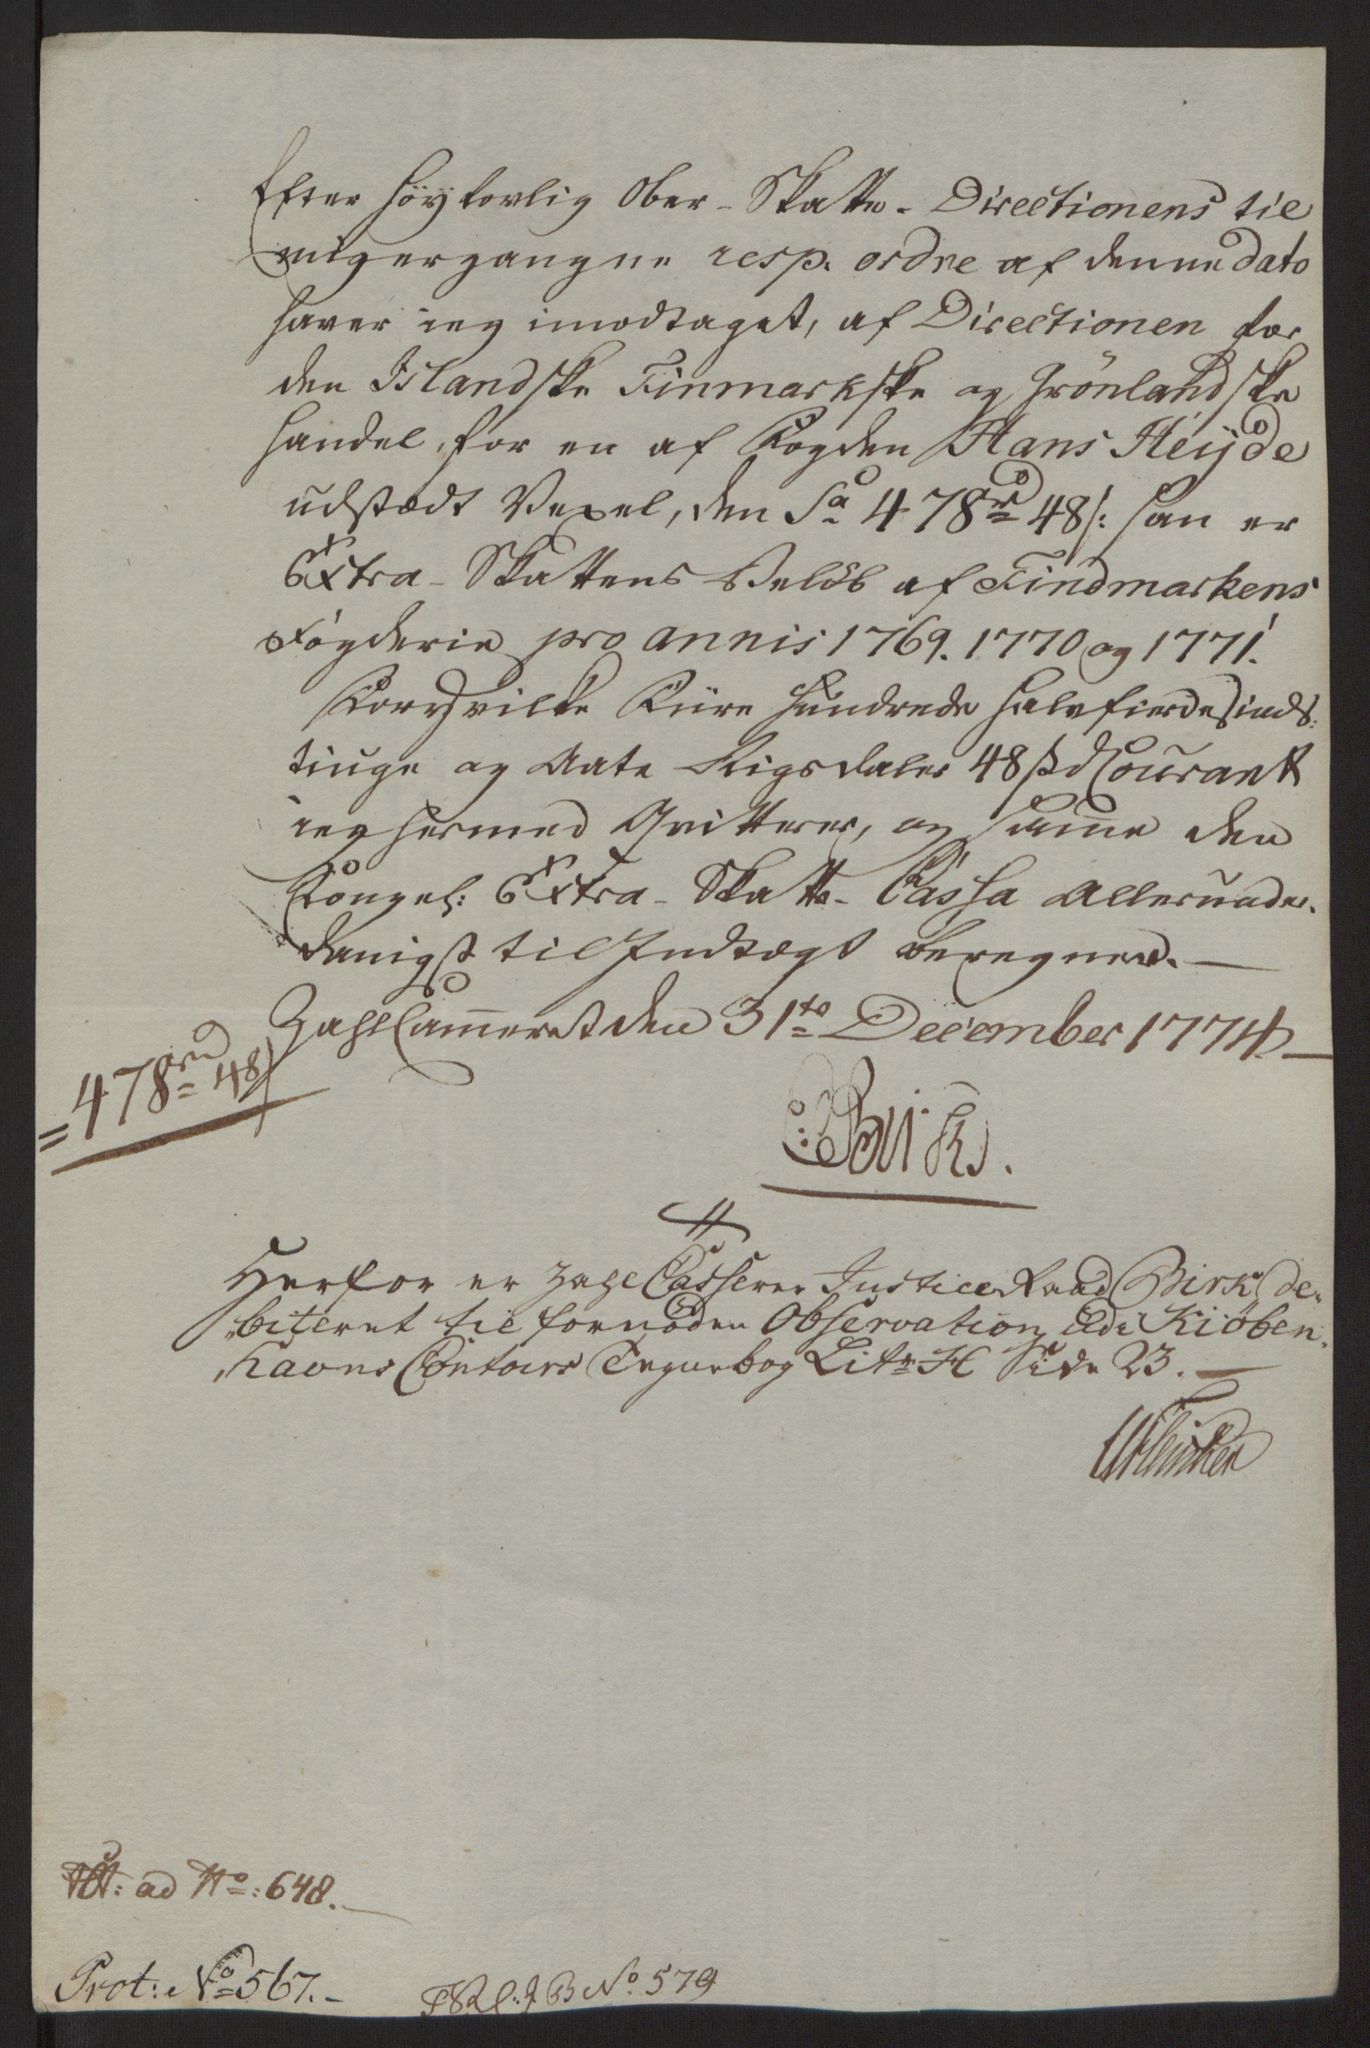 Efter höylovlig Ober-Skatte-Directionens til
mig ergangne resp. ordre af denne dato
haver jeg imodtaget, af Directionen for
den Islandske Finmarkske og Grönlandske
Handel, for en af Fogden Hans Heÿde
udstædt Vexel, den S:a 478 rd 48 s: som er
Extra-Skattens Belöb af Findmarkens
Fögderie pro annis 1769. 1770 og 1771.
For hvilke Fiire Hundrede halvfierdesinds-
tiuge og Aate Rigsdaler 48 s d: Courant
jeg hermed Qvitterer, og samme den
Kongel: Extra-Skatte-Cassa Allerunder-
danigst til Indtægt beregner.
Zahl Cammeret den 31te December 1774
= 478 rd = 48 s
Birk.
Herfor er Zahl Casserer Justice Raad Birk de-
biteret til fornöden Observation udi Kiöben-
havns Contoirs Tegnebog Litr: H Side 23.
ad No: 648.
Prot: No 567.
No. 579